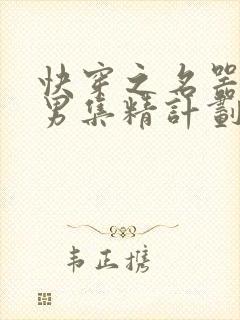 快穿之名器
男集精計劃
韦正携